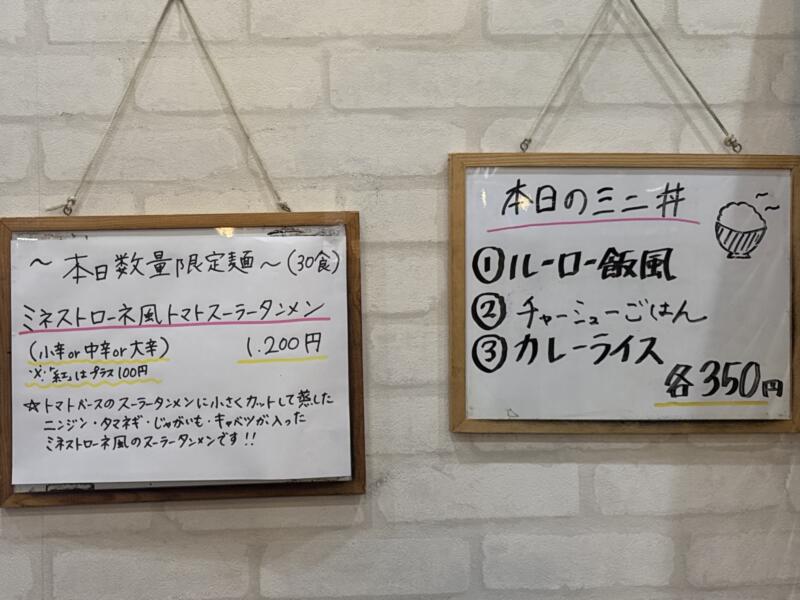 ～本日数量限定麺～(30食)
ミネストローネ風トマトスーラータンメン
(小辛or中辛or大辛)
1.200円
※「紅」はプラス100円
☆トマトベースのスーラータンメンに小さくカットして蒸した
ニンジン・タマネギ・じゃがいも・キャベツが入った
ミネストローネ風のスーラータンメンです!!
本日のミニ丼
①ルーロー飯風
②チャーシューごはん
③カレーライス
各350円